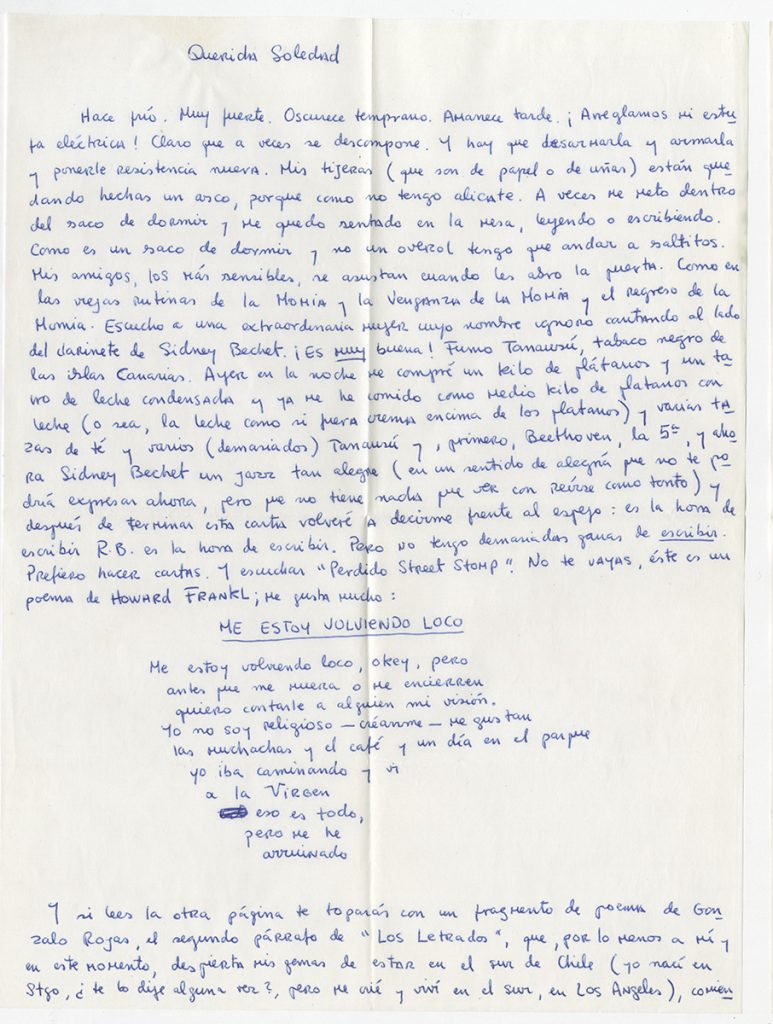 Querida Soledad
Hace frío. Muy fuerte. Oscurece temprano. Amanece tarde. ¡Arreglamos mi estu
fa eléctrica! Claro que a veces se descompone. Y hay que desarmarla y armarla
y ponerle resistencia nueva. Mis tijeras (que son de papel o de uñas) están que
dando hechas un asco, porque como no tengo alicate. A veces me meto dentro
del saco de dormir y me quedo sentado en la mesa, leyendo o escribiendo.
Como es un saco de dormir y no un overol tengo que andar a saltitos.
Mis amigos, los más sensibles, se asustan cuando les abro la puerta. Como en
las viejas rutinas de la Momia y la Venganza de la Momia y el regreso de la
Momia. Escucho a una extraordinaria mujer cuyo nombre ignoro cantando al lado
del clarinete de Sidney Bechet. ¡Es muy buena! Fumo Tanausú, tabaco negro de
las islas Canarias. Ayer en la noche me compré un kilo de plátanos y un ta
rro de leche condensada y ya me he comido como medio kilo de platanos con
leche (o sea, la leche como si fuera crema encima de los platanos) y varias ta
zas de té y varios (demasiados) Tanausú y, primero, Beethoven, la 5ª, y aho
ra Sidney Bechet un jazz tan alegre (en un sentido de alegría que no te po
dría expresar ahora, pero que no tiene nada que ver con reírse como tonto) y
después de terminar esta carta volveré a decirme frente al espejo: es la hora de
escribir R.B. es la hora de escribir. Pero no tengo demasiadas ganas de escribir.
Prefiero hacer cartas. Y escuchar "Perdido Street Stomp". No te vayas, éste es un
poema de Howard Frankl; me gusta mucho:
ME ESTOY VOLVIENDO LOCO
Me estoy volviendo loco, okey, pero
antes que me muera o me encierren
quiero contarle a alguien mi visión.
Yo no soy religioso — créanme — me gustan
las muchachas y el café y un día en el parque
yo iba caminando y vi
a la Virgen
eso es todo,
pero me he
arruinado
Y si lees la otra página te toparás con un fragmento de poema de Gon
zalo Rojas, el segundo párrafo de "Los Letrados", que, por lo menos a mí y
en este momento, despierta mis gemas de estar en el sur de Chile (yo nací en
Stgo, ¿te lo dije alguna vez?, pero me crié y viví en el sur, en Los Angeles), comien